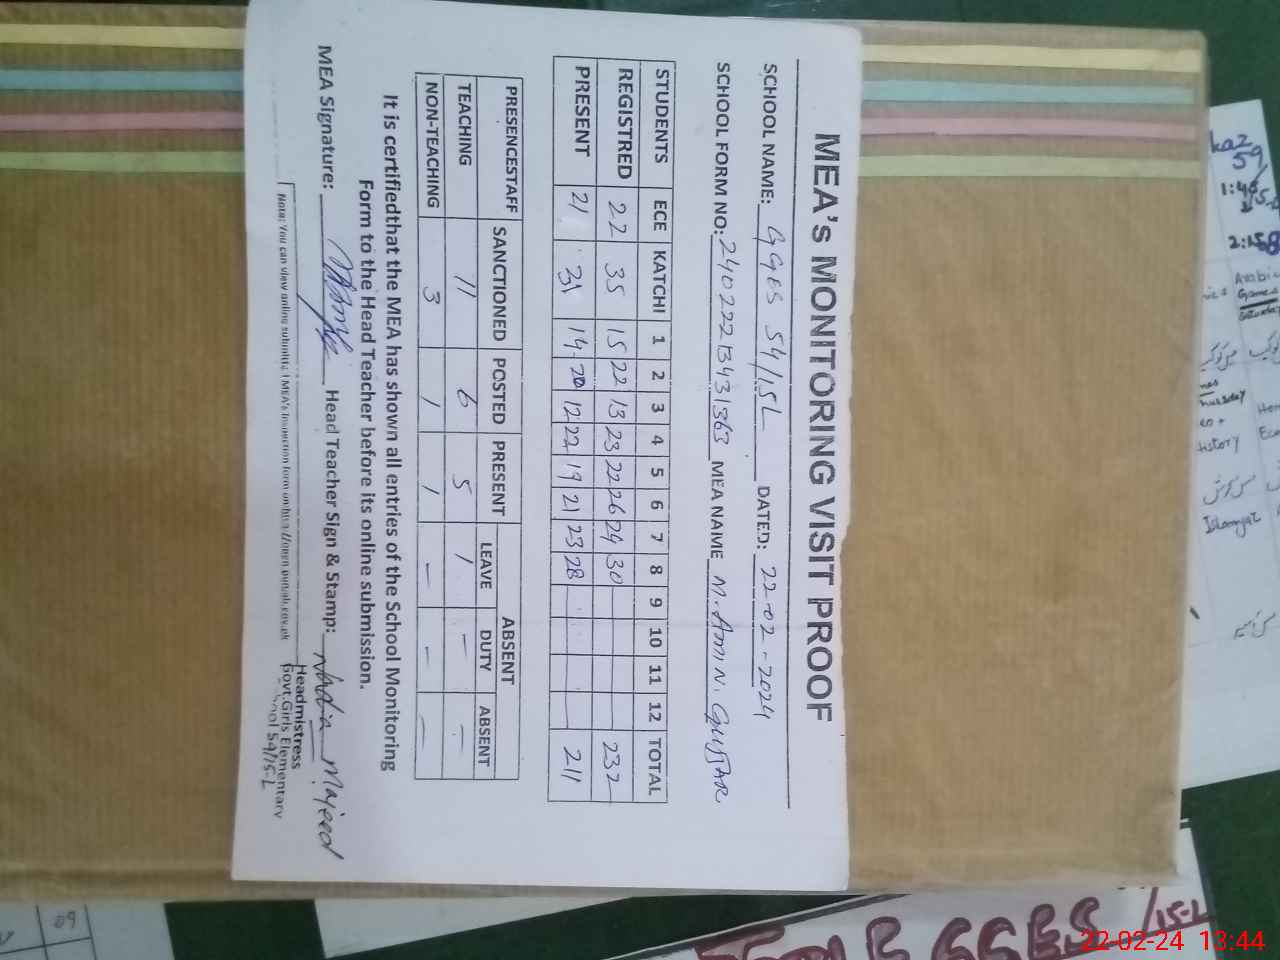 MEA's MONITORING VISIT PROOF
SCHOOL NAME: GGES 54/15L DATED: 22-02-2024
SCHOOL FORM NO: 24022213431363 MEA NAME M. AMIN. GUJJAR
STUDENTS ECE KATCHI 1 2 3 4 5 6 7 8 9 10 11 12 TOTAL
REGISTRED 22 35 15 22 13 23 22 26 24 30 232
PRESENT 21 31 14 20 12 22 19 21 23 28 211
PRESENCESTAFF SANCTIONED POSTED PRESENT ABSENT
LEAVE DUTY ABSENT
TEACHING 11 6 5 1 – –
NON-TEACHING 3 1 1 – – –
It is certifiedthat the MEA has shown all entries of the School Monitoring
Form to the Head Teacher before its online submission.
MEA Signature: Head Teacher Sign & Stamp: Nadia Majeed
Headmistress
Govt.Girls Elementary
54/15-L
Note: You can view online submitted MEA's Inspection form on
1:45
2:15
Games
History
Islamyat
09
GGES /15-L
22-02-24 13:44